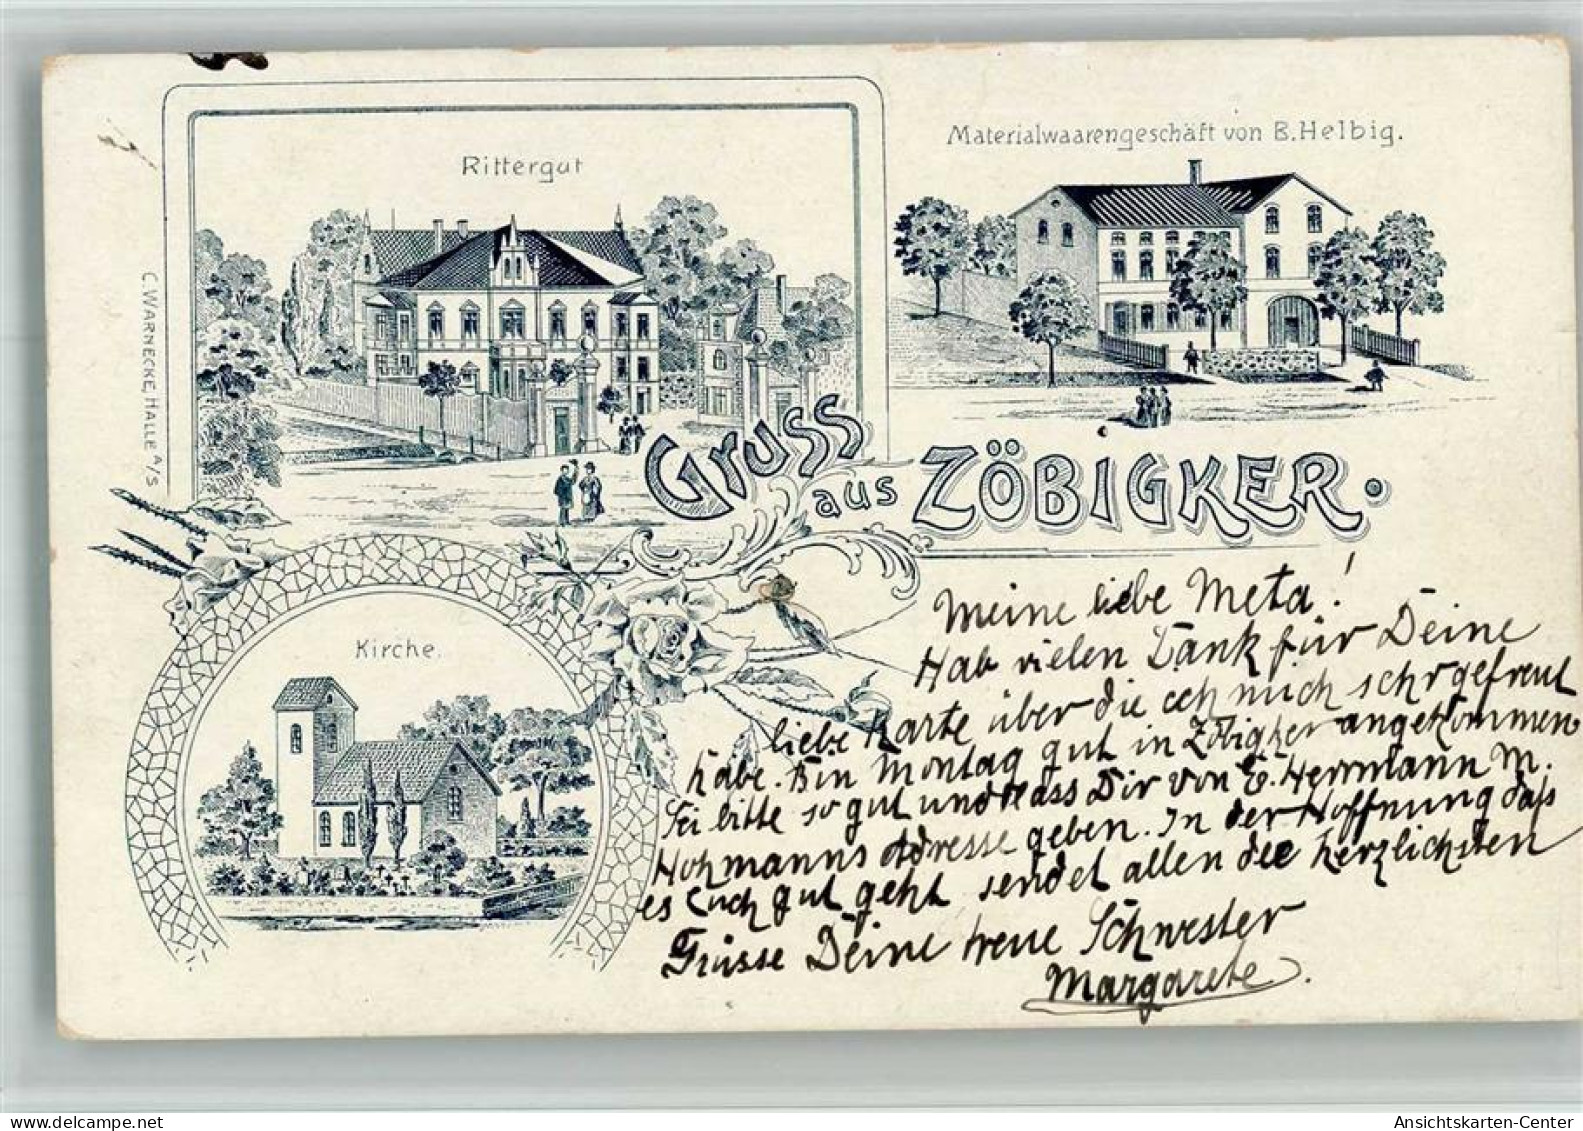 Rittergut
Materialwaarengeschäft von B. Helbig.
C. WARNECKE, HALLE A/S
Gruss aus ZÖBIGKER.
Kirche.
Meine liebe Meta!
Hab vielen Dank für Deine
liebe Karte über die ich mich sehr gefreut
habe. Bin Montag gut in Zöbigker angekommen
Sei bitte so gut und lass Dir von E. Herrmann M.
Hohmanns Adresse geben. In der Hoffnung daß
es Euch gut geht sendet allen die herzlichsten
Grüsse Deine treue Schwester
Margarete.
oldthing.de
Ansichtskarten-Center